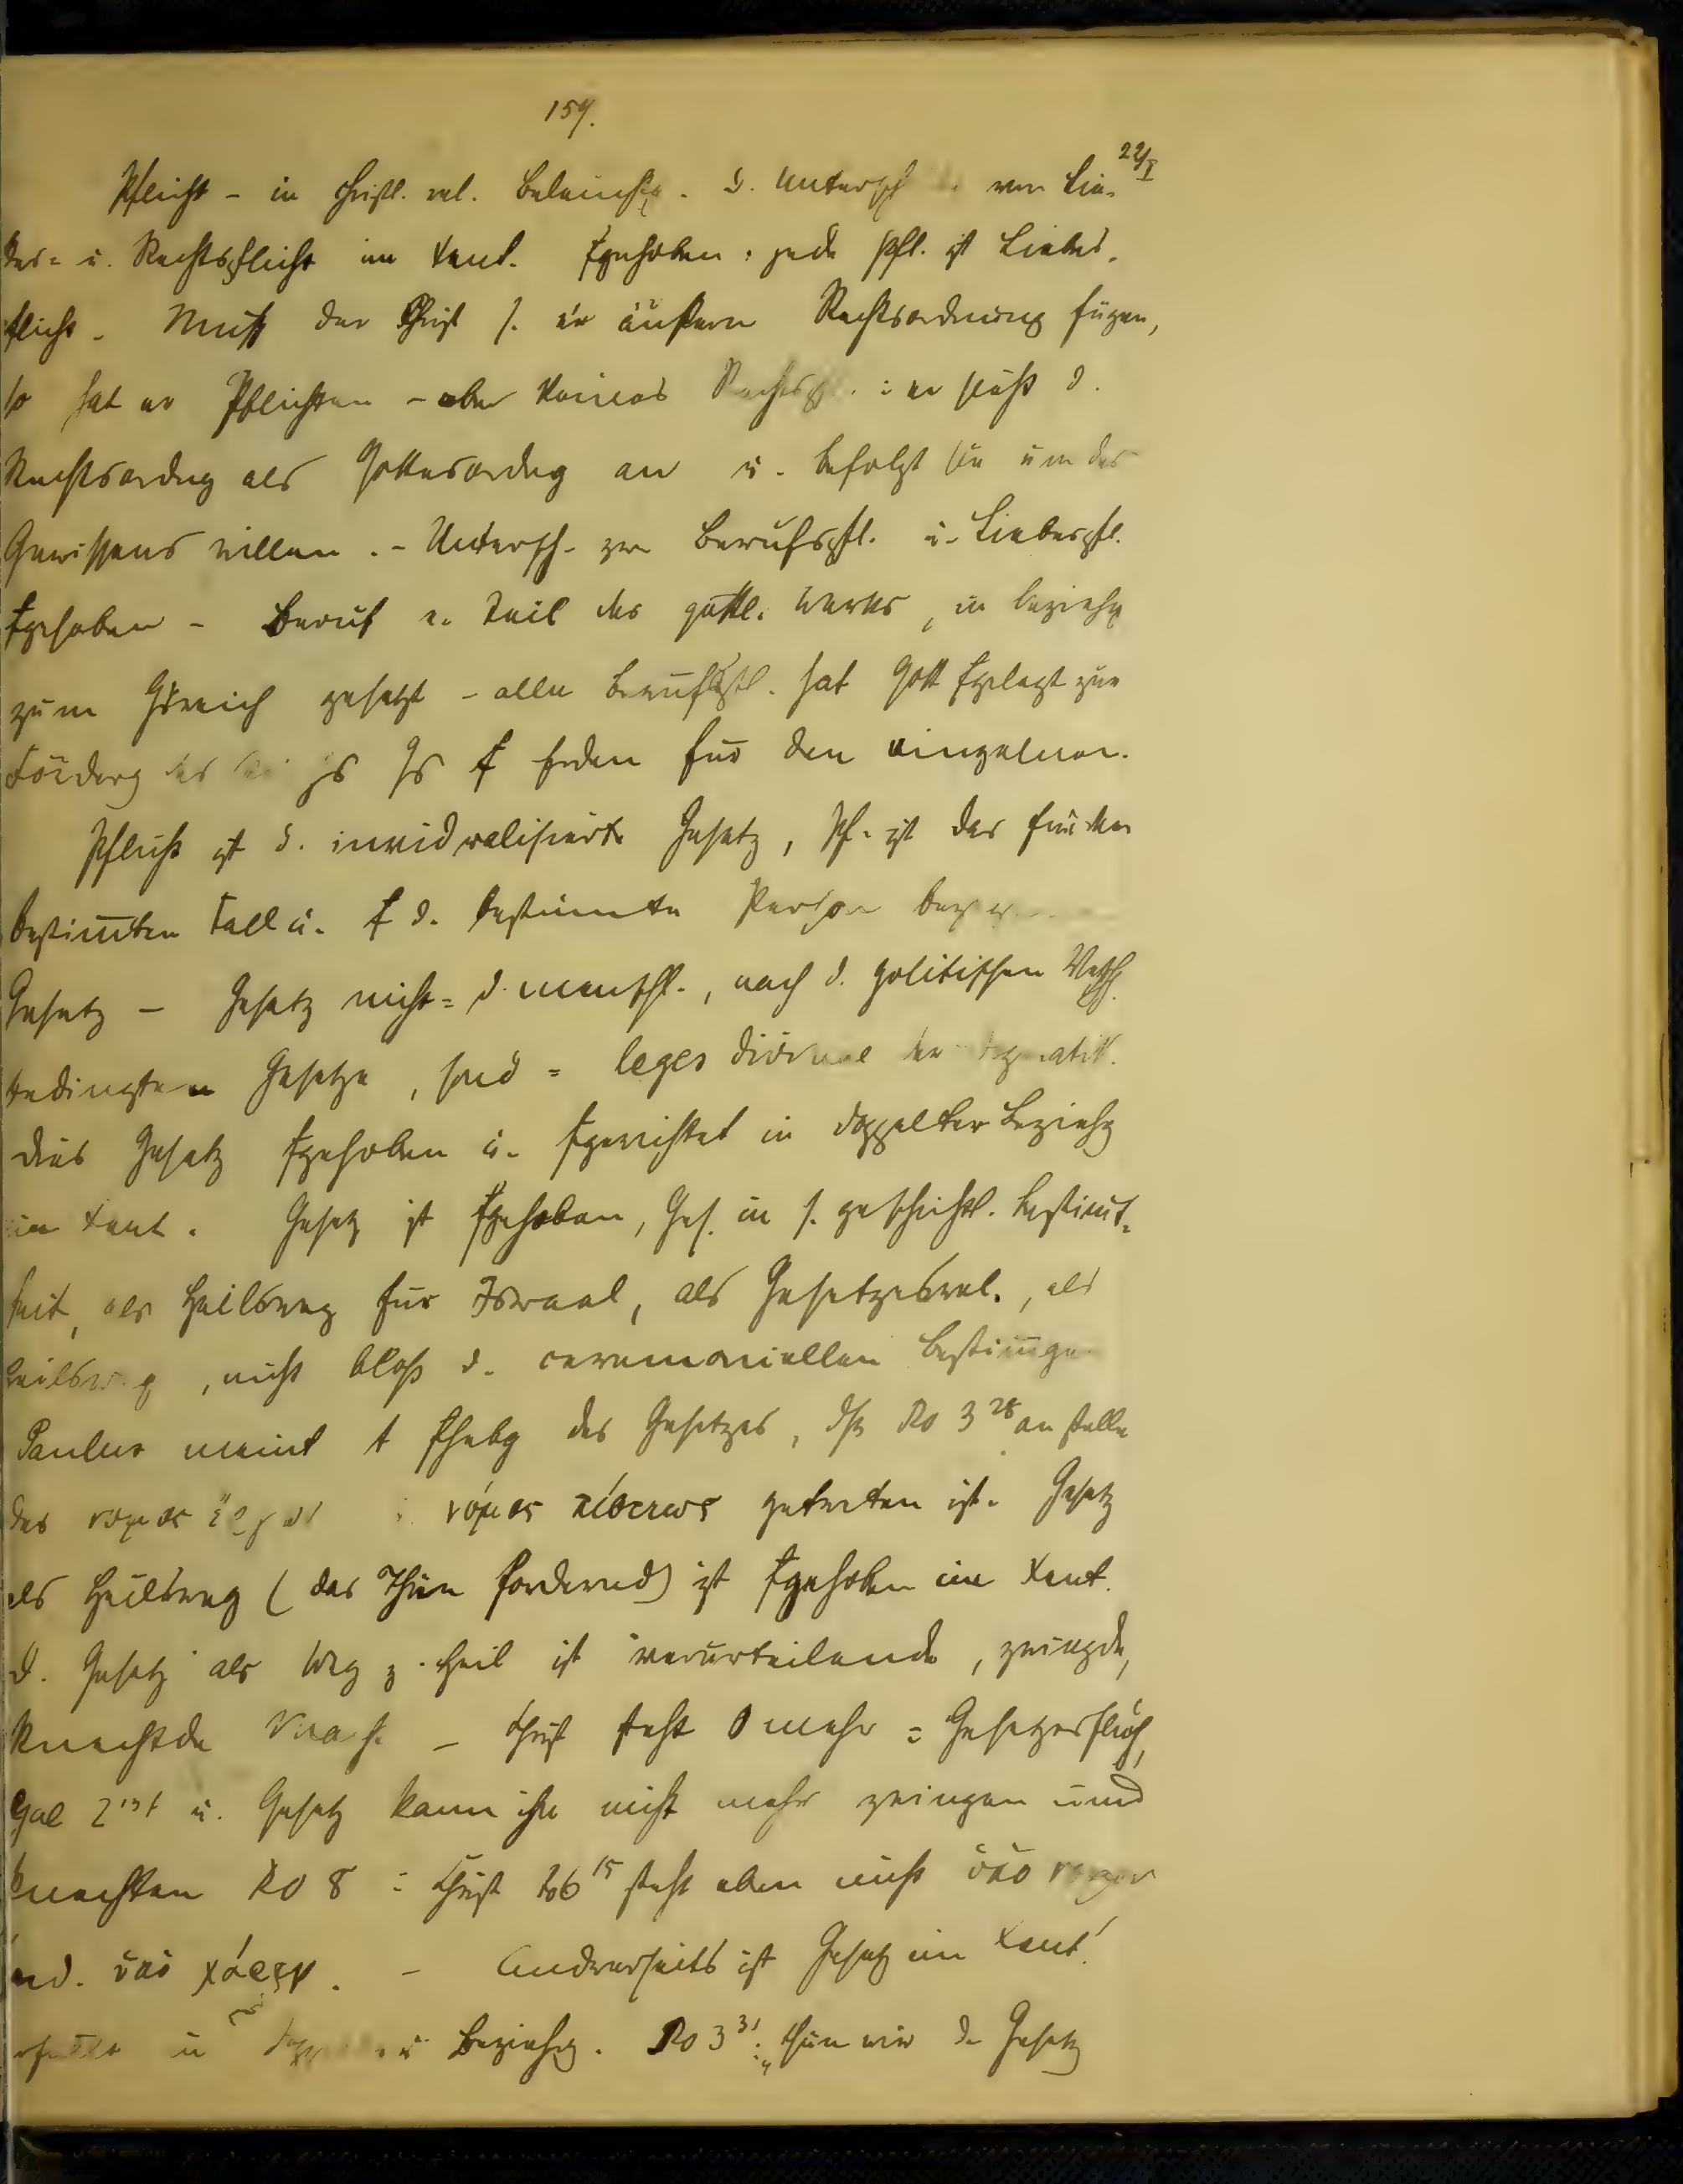 159.
22/I
Pflicht - in christl. rel. Beleuchtg. D. Untersch von Lie-
bes= u. Rechtspflicht im Xent. fgehoben: jede Pfl. ist Liebes-
pflicht. Muß der Christ s. er äußern Rechtsordnung fügen,
so hat er Pflichten - aber keines Rechtspfl.: er sieht d.
Rechtsordng als Gottesordng an u. befolgt sie um des
Gewissens willen. - Untersch. zw. Berufspfl. u. Liebespfl.
fgehoben - Beruf e. Teil des göttl. Werks, in Beziehg
zum Gsreich gesetzt - alle Berufspfl. hat Gott fgelegt zur
Förderg des Gs f Erden für den einzelnen.
Pflicht ist d. invidualisierte Gesetz, Pf. ist das für den
bestim̅ten Fall u. f d. bestimmte Person
Gesetz - Gesetz nicht = d. menschl., nach d. politischen Verh.
bedingten Gesetze, sond = leges divinae der Dogmatik.
Dies Gesetz fgehoben u. fgerichtet in doppelter Beziehg
im Xent. Gesetz ist fgehoben, Ges. in s. geschichtl. Bestimt-
heit, als Heilsweg für Israel, als Gesetzesrel., als
Heilsweg, nicht bloß d. ceremoniellen Bestim̅gen
Paulus meint t fhebg des Gesetzes, dß Rö 3 28 an Stelle
des νομος ἔργων νόμος πίστεως getreten ist. Gesetz
als Heilsweg (das Thun fordernd) ist fgehoben im Xent.
D. Gesetz als Weg z. Heil ist verurteilende, zwingde,
knechtde Macht - Christ steht 0 mehr = Gesetzesfluch,
Gal 2 13f u. Gesetz kann ihn nicht mehr zwingen und
knechten Rö 8 : Christ Rö6 15 steht eben nicht ὑπο νομον
snd. ὑπο χάριν. - Andrerseits ist Gesetz im Xent.
erfüllt in doppelter Beziehg. Rö 3 31: „thun wir d. Gesetz